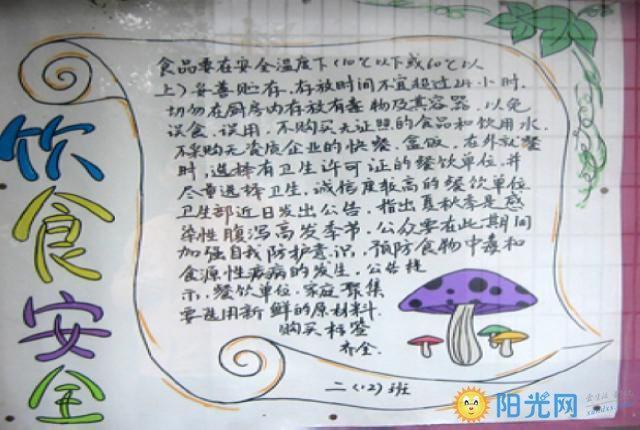 饮食安全
食品要在安全温度下(10℃以下或60℃以
上)妥善贮存,存放时间不宜超过24小时.
切勿在厨房内存放有毒物及其容器.以免
误食.误用.不购买无证照的食品和饮用水.
不采购无资质企业的快餐.盒饭.在外就餐
时,选择有卫生许可证的餐饮单位.并
尽量选择卫生,诚信度较高的餐饮单位.
卫生部近日发出公告,指出夏秋季是感
染性腹泻高发季节,公众要在此期间
加强自我防护意识,预防食物中毒和
食源性疾病的发生.公告提
示,餐饮单位.家庭聚集
要选用新鲜的原材料.
购买标签
齐全.
二(12)班
阳光网